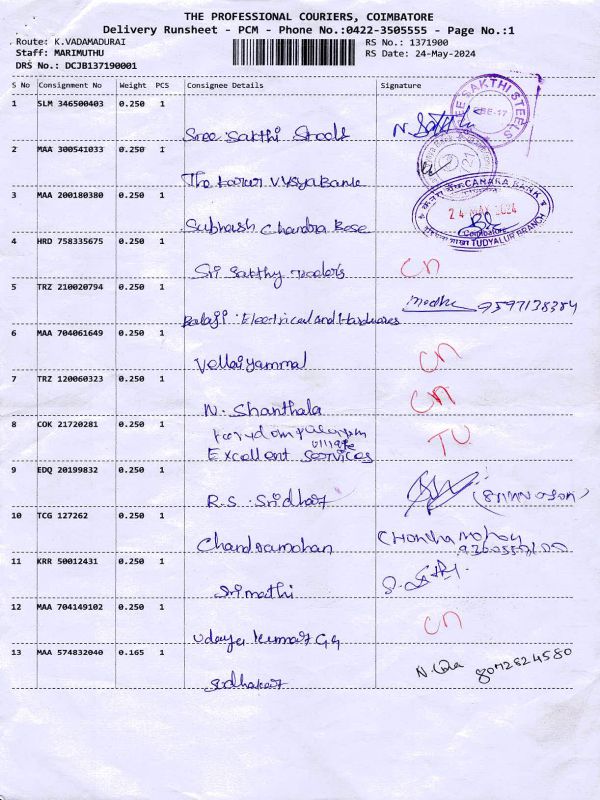 THE PROFESSIONAL COURIERS, COIMBATORE
Delivery Runsheet - PCM - Phone No.:0422-3505555 - Page No.:1
Route: K.VADAMADURAI RS No.: 1371900
Staff: MARIMUTHU RS Date: 24-May-2024
DRS No.: DCJB137190001
S No Consignment No Weight PCS Consignee Details Signature
1 SLM 346500403 0.250 1
Sree Sakthi Steels N. Sakthi
SREE SAKTHI STEELS
2 MAA 300541033 0.250 1
The Karur Vysya Bank
3 MAA 200180380 0.250 1
Subhash Chandra Bose
CANARA BANK
24 MAY 2024
Coimbatore
TUDYALUR BRANCH
4 HRD 758335675 0.250 1
Sri Sakthy Traders CN
5 TRZ 210020794 0.250 1
Balaji Electrical and Hardwares 9597138384
6 MAA 704061649 0.250 1
Vellaiyammal CN
7 TRZ 120060323 0.250 1
N. Shanthala CN
8 COK 21720281 0.250 1
village
Excellent Services
9 EDQ 20199832 0.250 1
R.S. Sridhar
10 TCG 127262 0.250 1
Chandramohan
11 KRR 50012431 0.250 1
Srimathi
12 MAA 704149102 0.250 1
Udaya Kumar GG CN
13 MAA 574832040 0.165 1
Sudhakar 8072824580